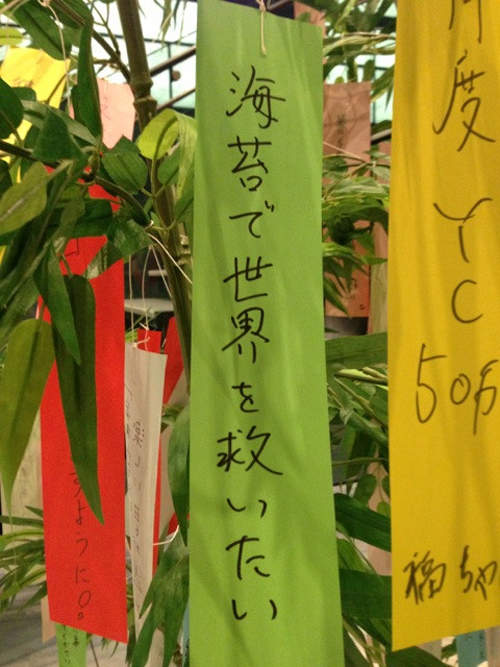 海苔で世界を救いたい
月度YC50万
福ちゃ
すように。